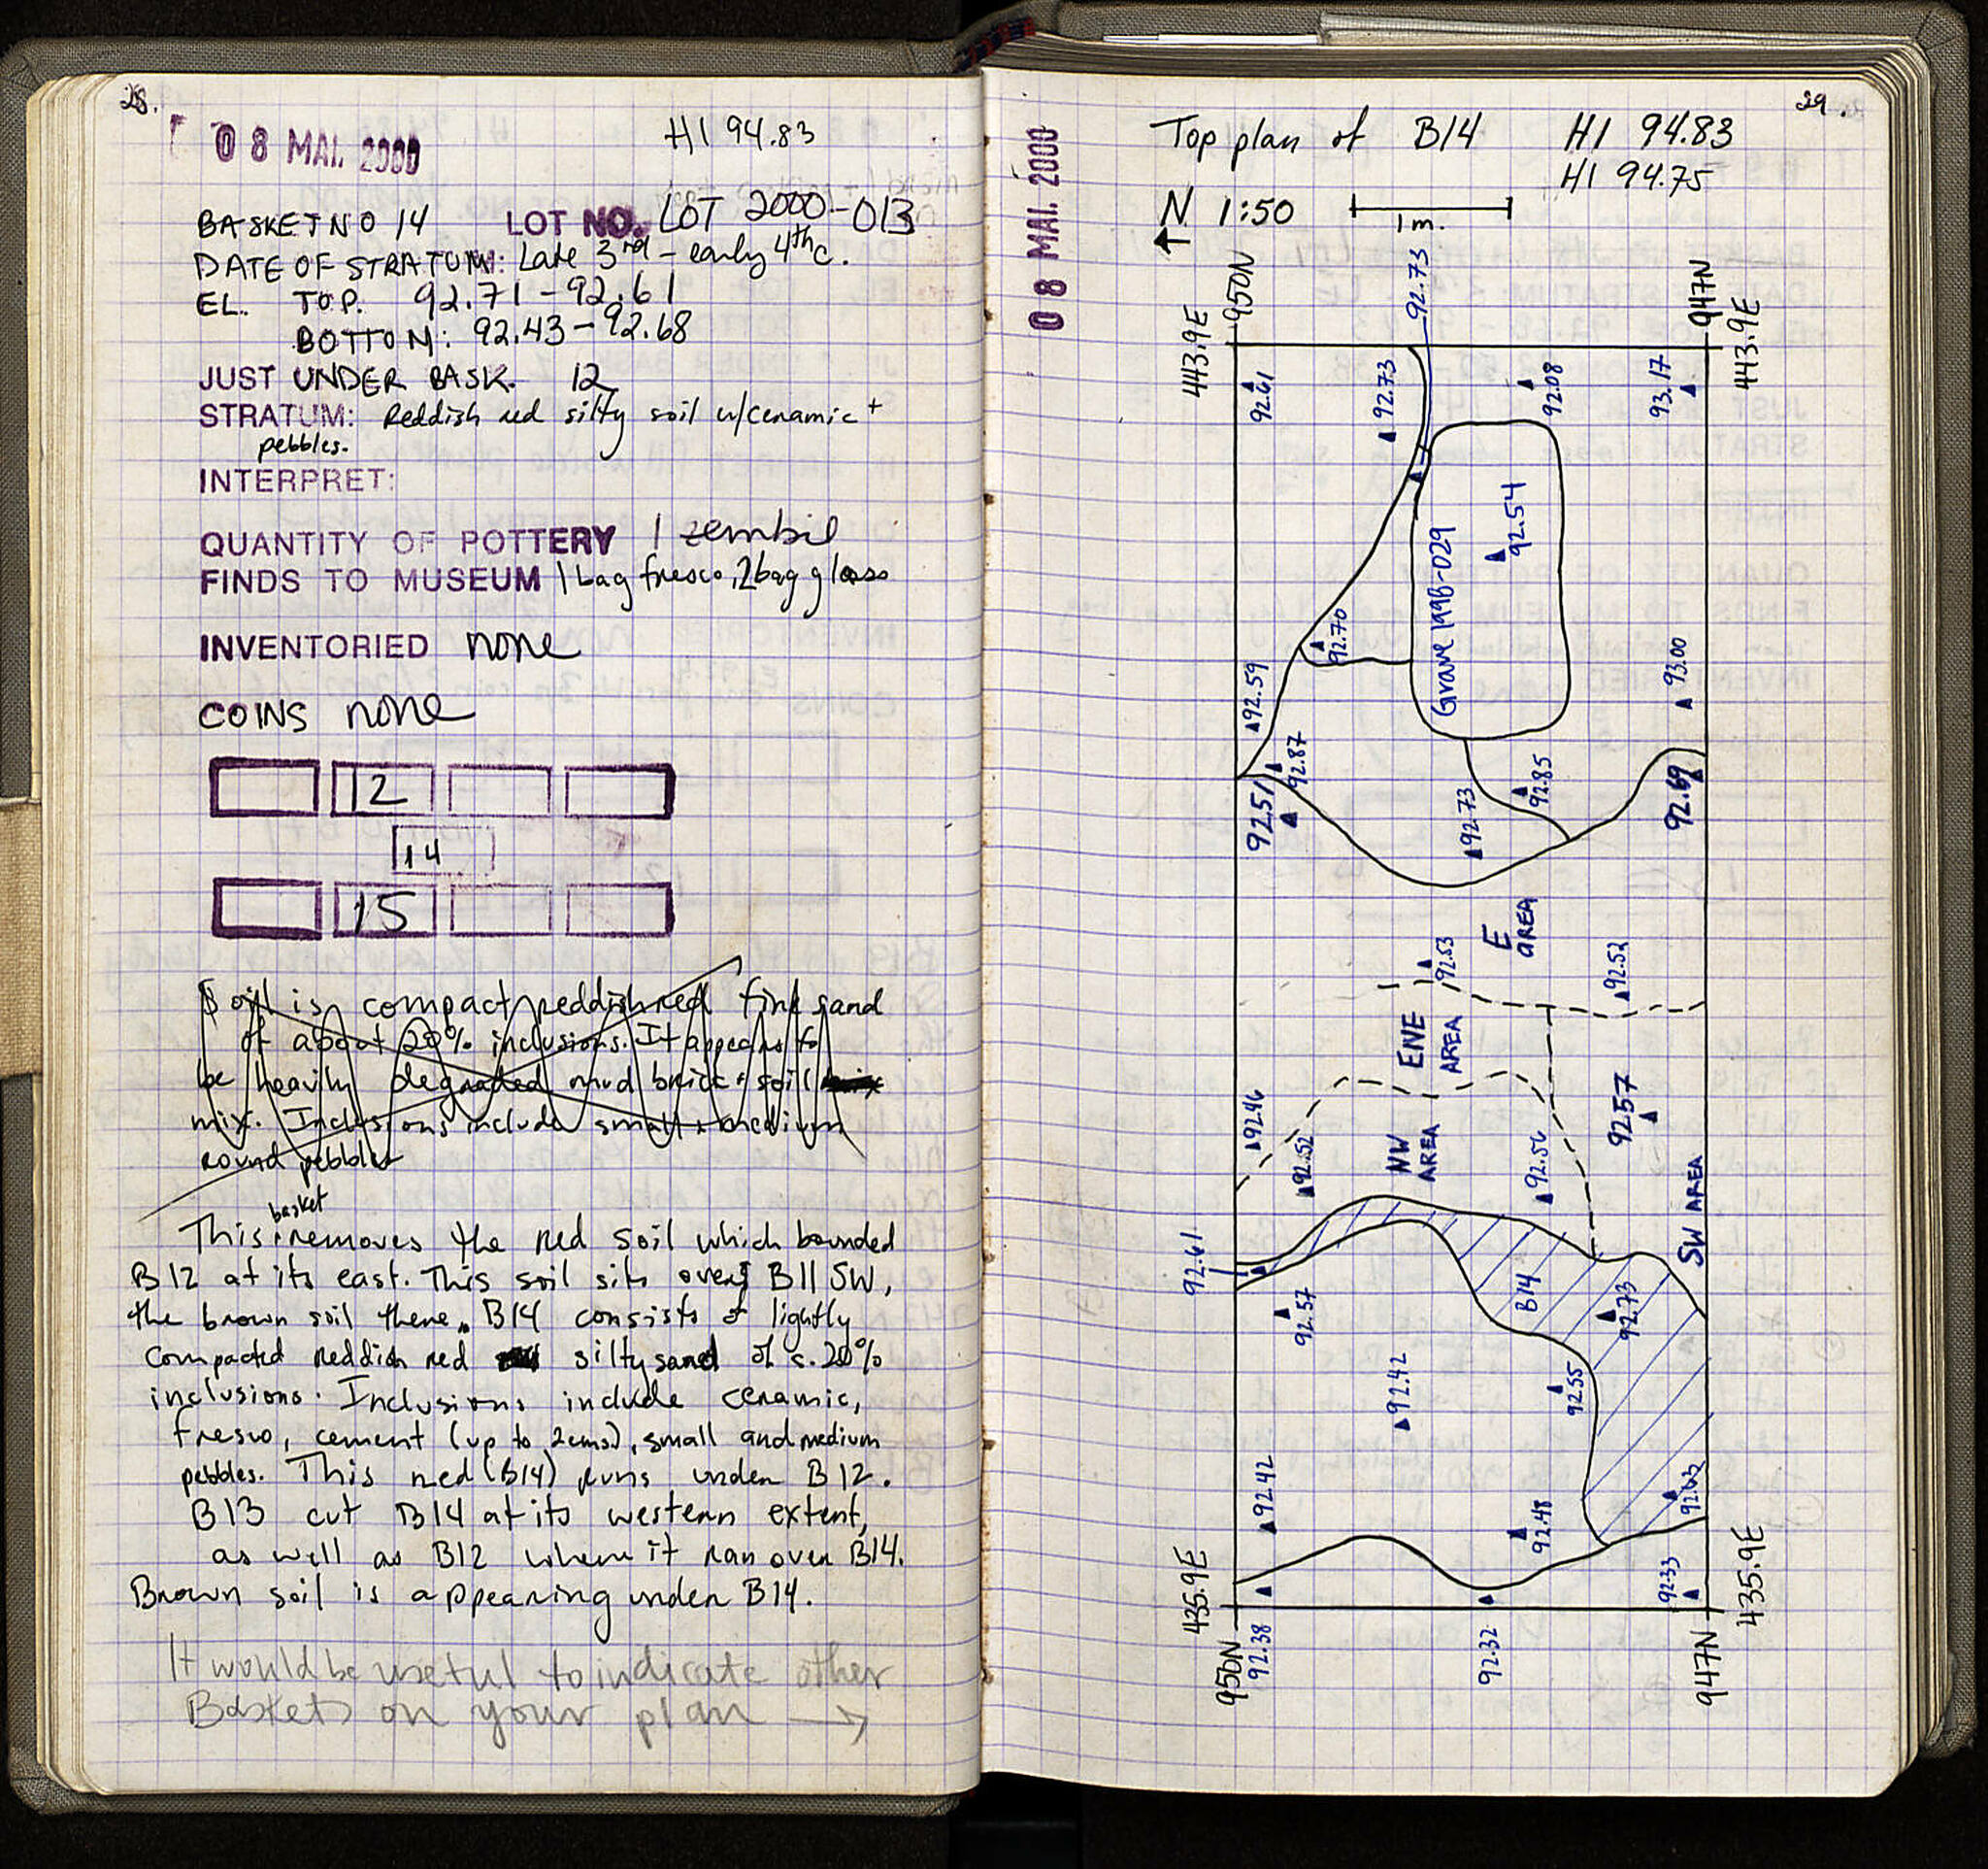 28.
08 MAI. 2000
HI 94.83
BASKET NO 14 LOT NO. LOT 2000-013
DATE OF STRATUM: Late 3rd - early 4th c.
EL. TOP. 92.71 - 92.61
BOTTOM: 92.43 - 92.68
JUST UNDER BASK. 12
STRATUM: Reddish red silty soil w/ceramic +
pebbles.
INTERPRET:
QUANTITY OF POTTERY 1 zembil
FINDS TO MUSEUM 1 bag fresco, 2 bag glass
INVENTORIED none
COINS none
12
14
15
Soil is compact reddish red fine sand
of about 20% inclusions. It appears to
be heavily degraded mud brick + soil
mix. Inclusions include small + medium
round pebbles
This basket removes the red soil which bounded
B12 at its east. This soil sits over B11 SW,
the brown soil there. B14 consists of lightly
compacted reddish red silty sand of c. 20%
inclusions. Inclusions include ceramic,
fresco, cement (up to 2cms), small and medium
pebbles. This red (B14) runs under B12.
B13 cut B14 at its western extent,
as well as B12 where it ran over B14.
Brown soil is appearing under B14.
It would be useful to indicate other
Baskets on your plan →
29.
08 MAI. 2000
Top plan of B14 HI 94.83
HI 94.75
N 1:50 1m.
950N
92.73
947N
443.9E
443.9E
92.61
92.73
92.08
93.17
Grave 1998-029
92.54
92.70
92.59
93.00
92.87
92.51
92.85
92.73
92.69
E
AREA
92.53
92.52
ENE
AREA
92.46
92.52
NW
AREA
92.56
92.57
SW AREA
92.61
92.57
B14
92.73
92.42
92.55
92.42
92.48
92.63
435.9E
92.33
435.9E
950N
92.38
92.32
947N